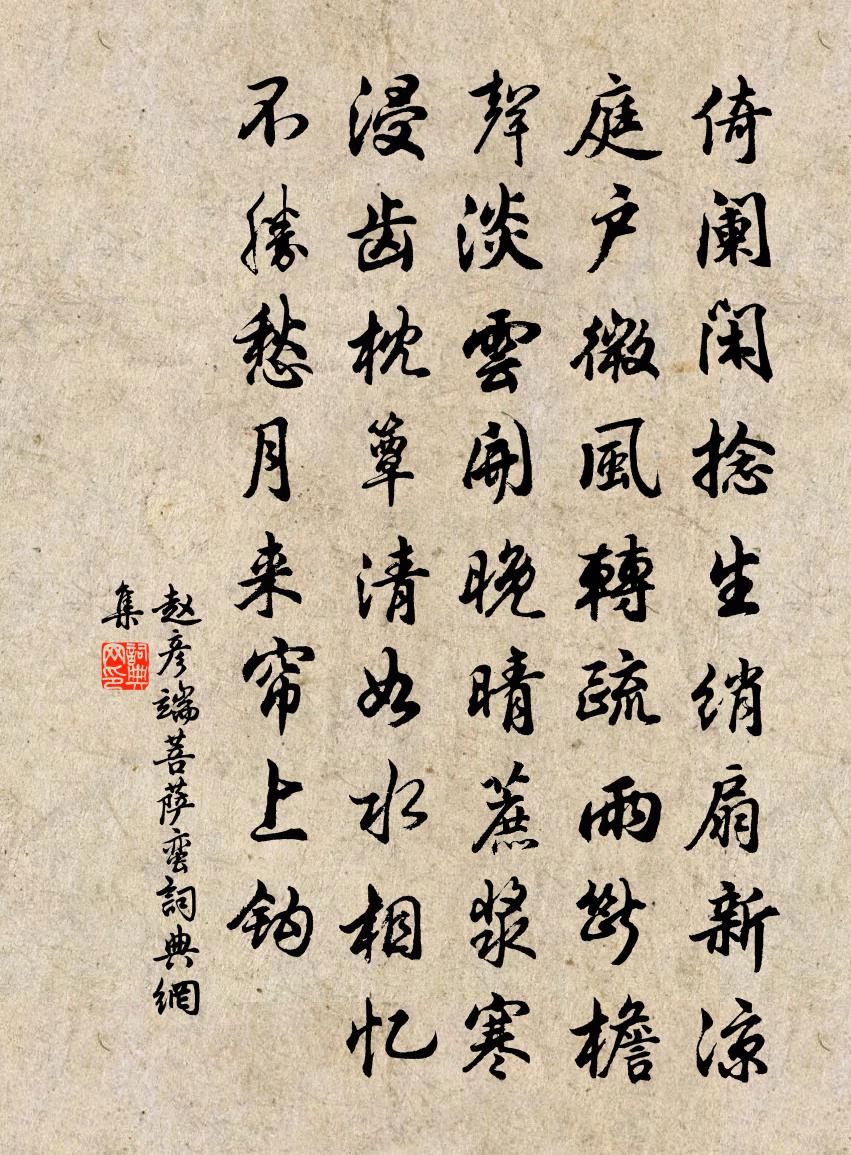 倚阑闲捻生绡扇新涼
庭户微風轉疏雨斷檐
聲淡雲開晚晴蔗漿寒
浸齿枕簟清如水相忆
不勝愁月来帘上鈎
赵彦端菩萨蛮詞典網
集
詞典网印